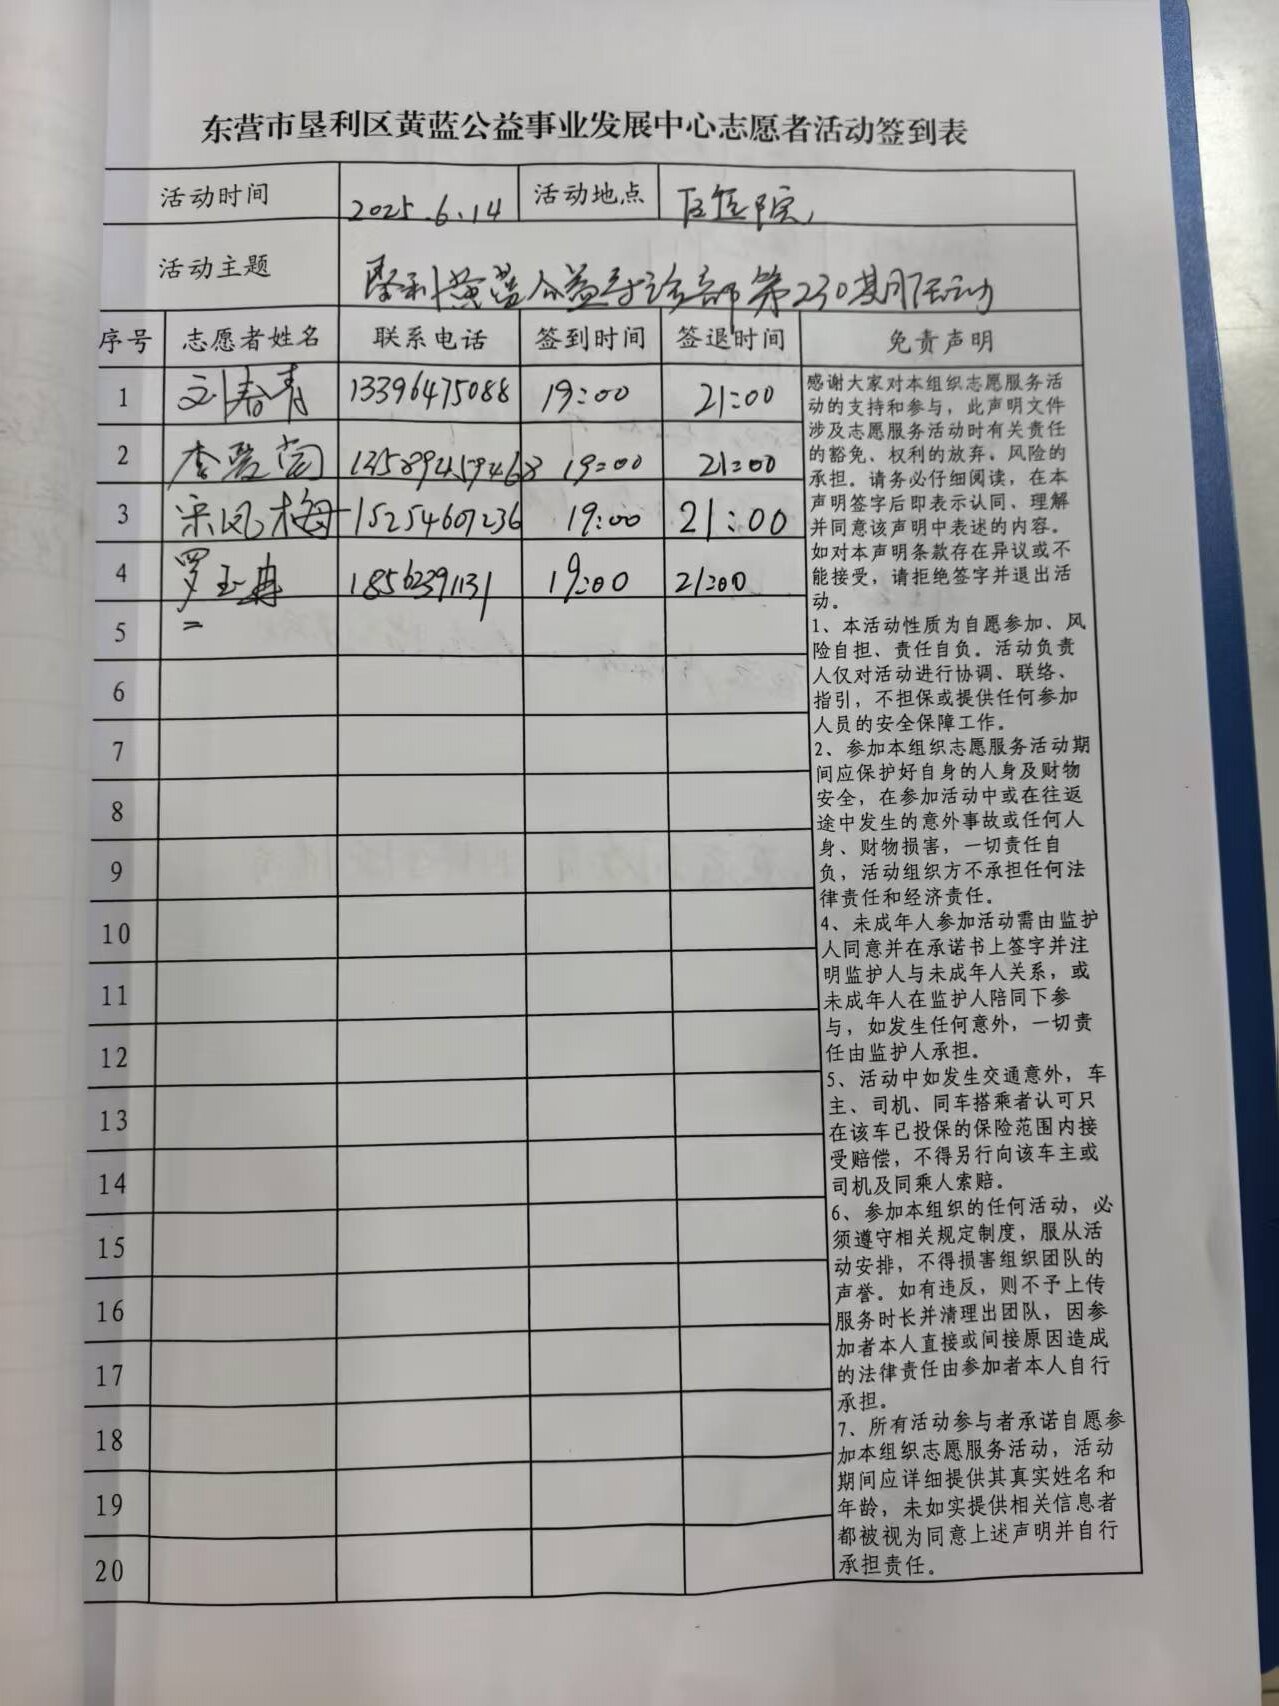 东营市垦利区黄蓝公益事业发展中心志愿者活动签到表
活动时间 2025.6.14 活动地点 区医院
活动主题 垦利黄蓝公益导诊部第230期活动
序号 志愿者姓名 联系电话 签到时间 签退时间 免责声明
1 刘春青 13396475088 19:00 21:00
2 李爱 19:00 21:00
3 宋风梅 15254607236 19:00 21:00
4 罗玉 18562391131 19:00 21:00
5
6
7
8
9
10
11
12
13
14
15
16
17
18
19
20
感谢大家对本组织志愿服务活
动的支持和参与，此声明文件
涉及志愿服务活动时有关责任
的豁免、权利的放弃、风险的
承担。请务必仔细阅读，在本
声明签字后即表示认同、理解
并同意该声明中表述的内容。
如对本声明条款存在异议或不
能接受，请拒绝签字并退出活
动。
1、本活动性质为自愿参加、风
险自担、责任自负。活动负责
人仅对活动进行协调、联络、
指引，不担保或提供任何参加
人员的安全保障工作。
2、参加本组织志愿服务活动期
间应保护好自身的人身及财物
安全，在参加活动中或在往返
途中发生的意外事故或任何人
身、财物损害，一切责任自
负，活动组织方不承担任何法
律责任和经济责任。
4、未成年人参加活动需由监护
人同意并在承诺书上签字并注
明监护人与未成年人关系，或
未成年人在监护人陪同下参
与，如发生任何意外，一切责
任由监护人承担。
5、活动中如发生交通意外，车
主、司机、同车搭乘者认可只
在该车已投保的保险范围内接
受赔偿，不得另行向该车主或
司机及同乘人索赔。
6、参加本组织的任何活动，必
须遵守相关规定制度，服从活
动安排，不得损害组织团队的
声誉。如有违反，则不予上传
服务时长并清理出团队，因参
加者本人直接或间接原因造成
的法律责任由参加者本人自行
承担。
7、所有活动参与者承诺自愿参
加本组织志愿服务活动，活动
期间应详细提供其真实姓名和
年龄，未如实提供相关信息者
都被视为同意上述声明并自行
承担责任。